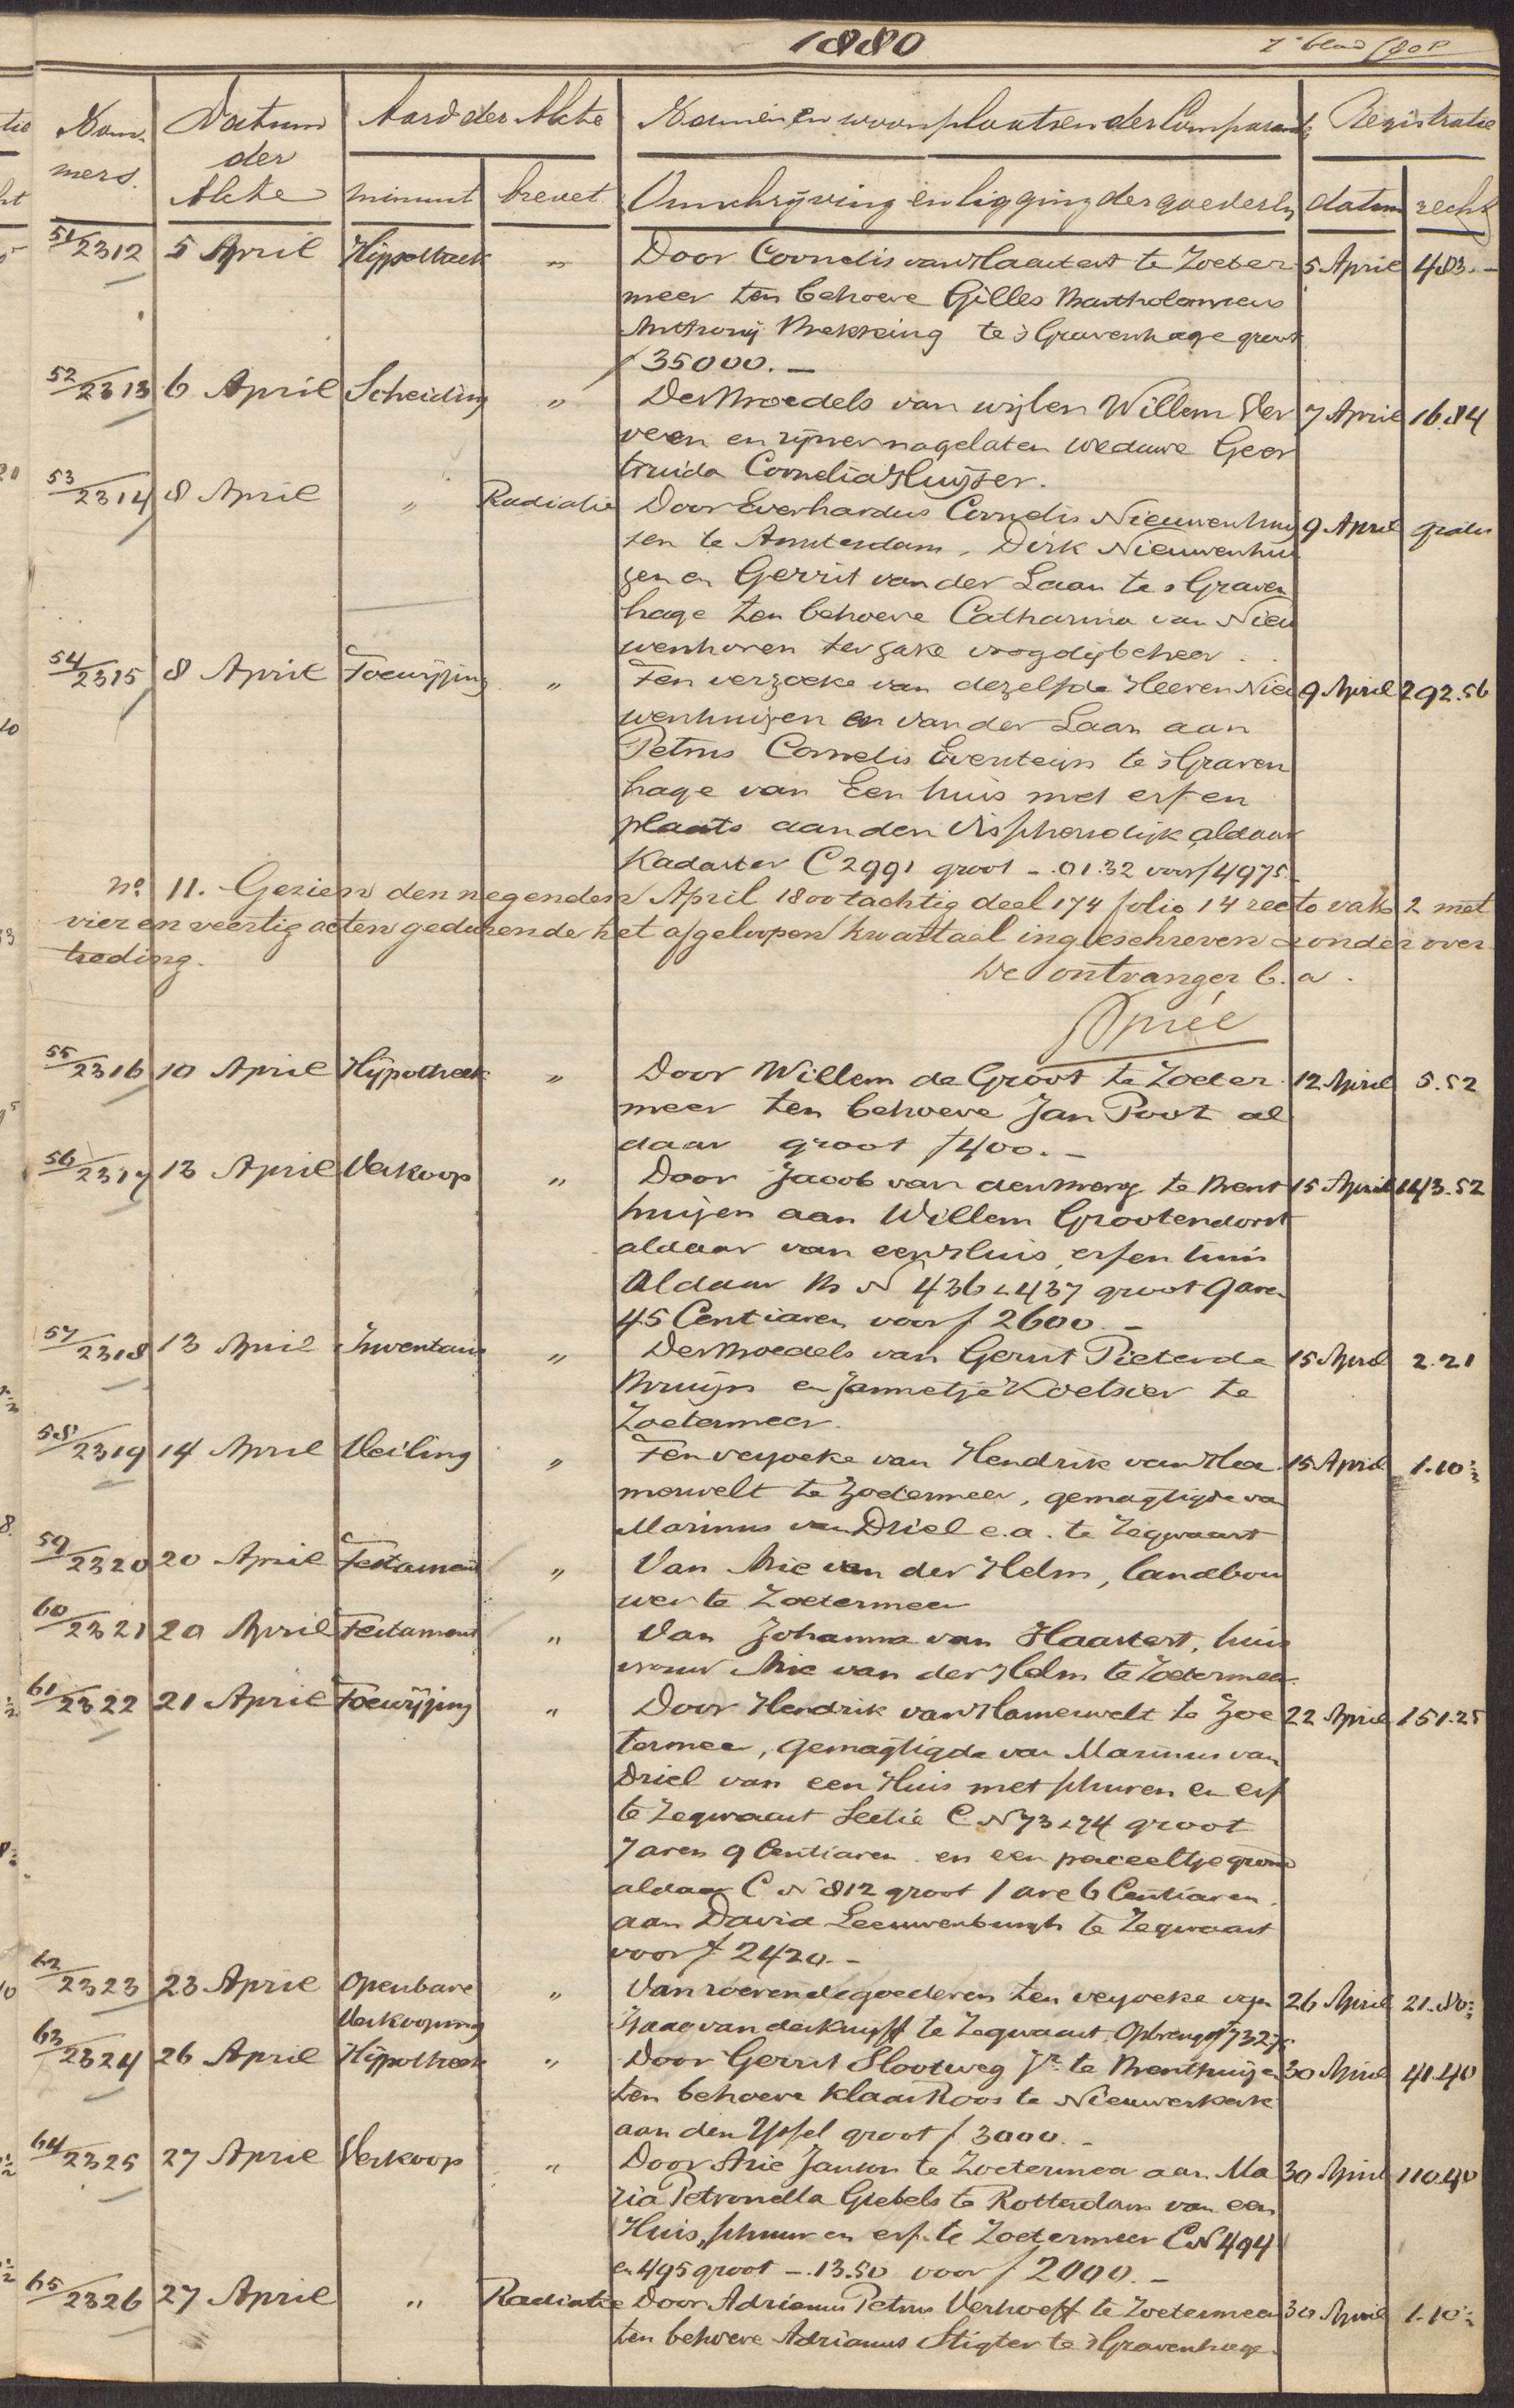 1880
7e blad
Nommers. Datum der Akte Aard der Akte Namen en woonplaatsen der Comparanten Registratie
minuut brevet Omschrijving en ligging der goederen datum recht
51/2312 5 April Hijpotheek " Door Cornelis van Haastert te Zoeter 5 April 483.-
meer ten behoeve Gilles Bartholomeus
Anthonij Bekking te 's Gravenhage groot
f 35000.-
52/2313 6 April Scheiding " Des Boedels van wijlen Willem Ver 7 April 16.84
veen en zijner nagelaten weduwe Geer
truida Cornelia Huijser.
53/2314 8 April " Radiatie Door Everhardus Cornelis Nieuwenhuij 9 April gratis
zen te Amsterdam, Dirk Nieuwenhui
zen en Gerrit van der Laan te 's Graven
hage ten behoeve Catharina van Nieu
wenhoven ter zake voogdijbeheer.
54/2315 8 April Toewijzing " Ten verzoeke van dezelfde Heeren Nieu 9 April 292.56
wenhuizen en van der Laan aan
Petrus Cornelis Eventeijn te 's Graven
hage van Een huis met erf en
plaats aan den Visschersdijk aldaar
Kadaster C 2991 groot -.01.32 voor f 4975.-
No. 11. Gezien den negenden April 1800 tachtig deel 174 folio 14 recto vak 2 met
vier en veertig acten gedurende het afgeloopen kwartaal ingeschreven zonder over
treding.
De ontvanger b.a.
55/2316 10 April Hijpotheek " Door Willem de Groot te Zoeter 12 April 5.52
meer ten behoeve Jan Poot al
daar groot f 400.-
56/2317 13 April Verkoop " Door Jacob van den Berg te Bent 15 April 143.52
huizen aan Willem Grootendorst
aldaar van een Huis, erf en tuin
aldaar B N 436 & 437 groot 9 are
45 Centiaren voor f 2600.-
57/2318 13 April Inventaris " Des Boedels van Gerrit Pieter de 15 April 2.21
Bruijn en Jannetje Koetsier te
Zoetermeer.
58/2319 14 April Veiling " Ten verzoeke van Hendrik van Ha 15 April 1.10½
merwelt te Zoetermeer, gemagtigde van
Marinus van Driel e.a. te Zegwaart
59/2320 20 April Testament " Van Arie van der Helm, landbou
wer te Zoetermeer
60/2321 20 April Testament " Van Johanna van Haastert, huis
vrouw Arie van der Helm te Zoetermeer.
61/2322 21 April Toewijzing " Door Hendrik van Hamerwelt te Zoe 22 April 151.25
termeer, gemagtigde van Marinus van
Driel van een Huis met schuren en erf
te Zegwaart Sectie C N 73 & 74 groot
7 aren 9 Centiaren en een perceeltje grond
aldaar C N 812 groot 1 are 6 Centiaren.
aan David Leeuwenburgh te Zegwaart
voor f 2420.-
62/2323 23 April Openbare " Van roerende goederen ten verzoeke van 26 April 21.80½
Verkooping Isaac van der Kruijff te Zegwaart. Opbrengst f 732.75
63/2324 26 April Hijpotheek " Door Gerrit Slootweg Jr. te Benthuizen 30 April 41.40
ten behoeve Klaas Roos te Nieuwerkerk
aan den IJssel groot f 3000.-
64/2325 27 April Verkoop " Door Arie Jansen te Zoetermeer aan Ma 30 April 110.40
ria Petronella Giebels te Rotterdam van een
Huis, schuur en erf te Zoetermeer C N 494
en 495 groot -.13.50 voor f 2000.-
65/2326 27 April " Radiatie Door Adrianus Petrus Verhoeff te Zoetermeer 30 April 1.10½
ten behoeve Adrianus Stigter te 's Gravenhage.